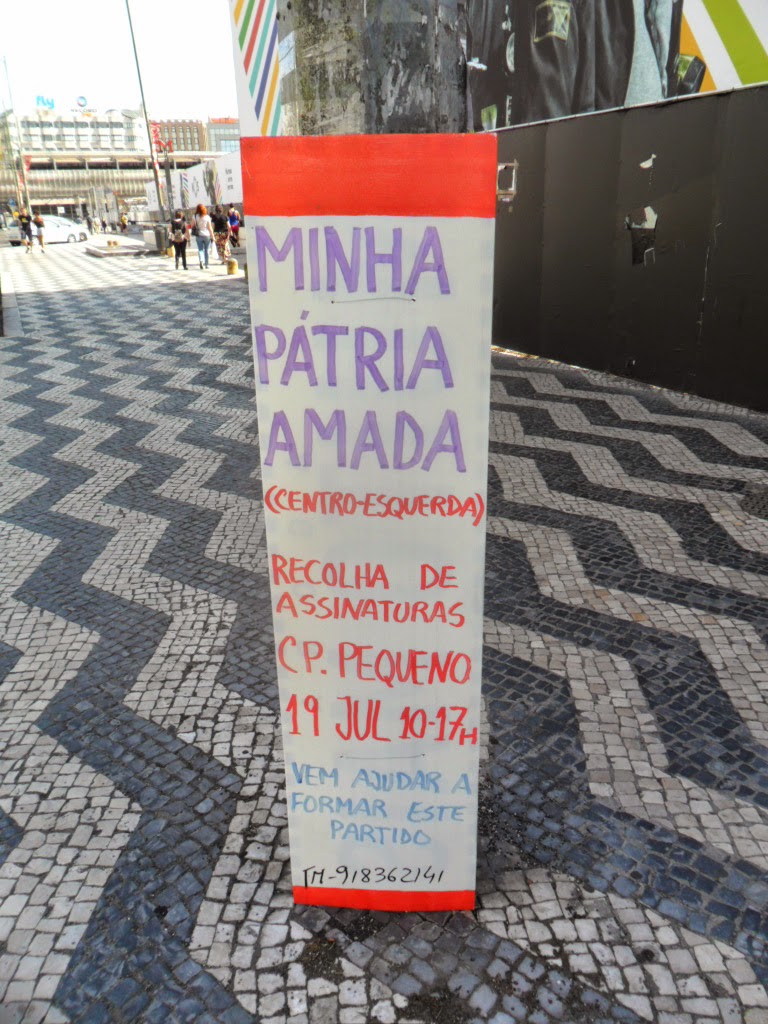 MINHA
PÁTRIA
AMADA
(CENTRO-ESQUERDA)
RECOLHA DE
ASSINATURAS
CP. PEQUENO
19 JUL 10-17H
VEM AJUDAR A
FORMAR ESTE
PARTIDO
TM-918362141